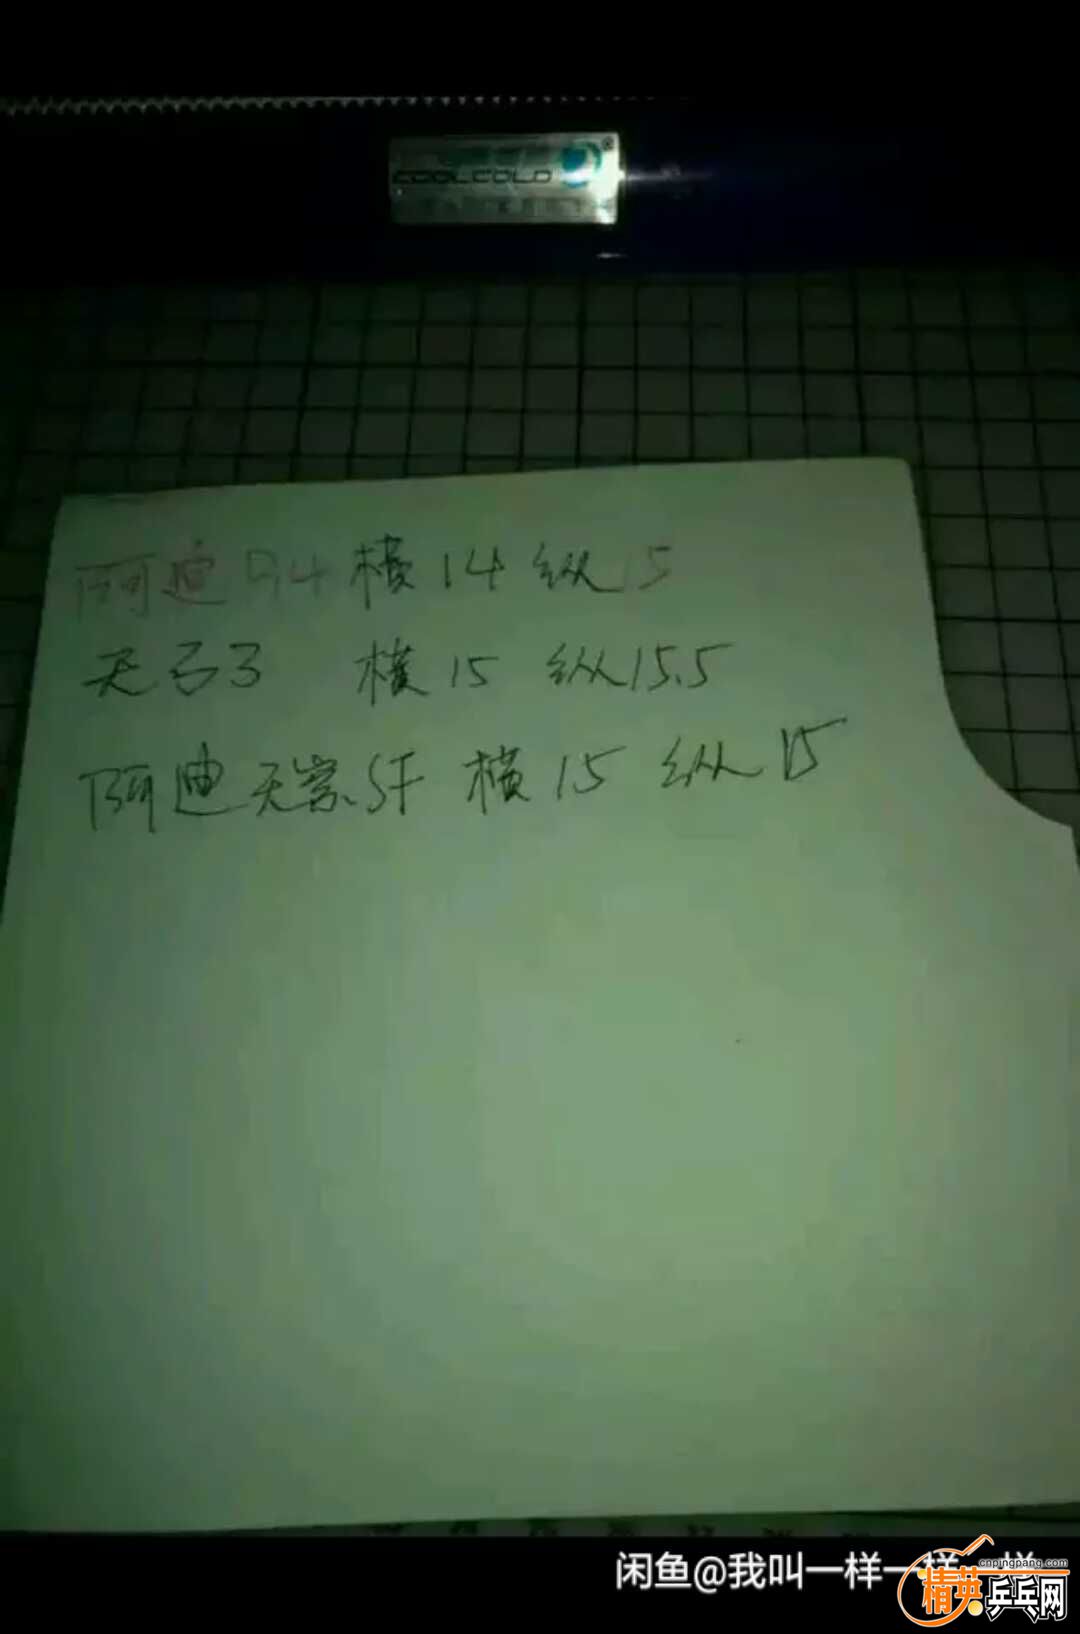 COOLCOLD
阿迪 R4 横 14 纵 15
天弓3 横 15 纵 15.5
阿迪天崇SF 横 15 纵 15
闲鱼@我叫一样一样一样
cnpingpang.com
精英乒乓网